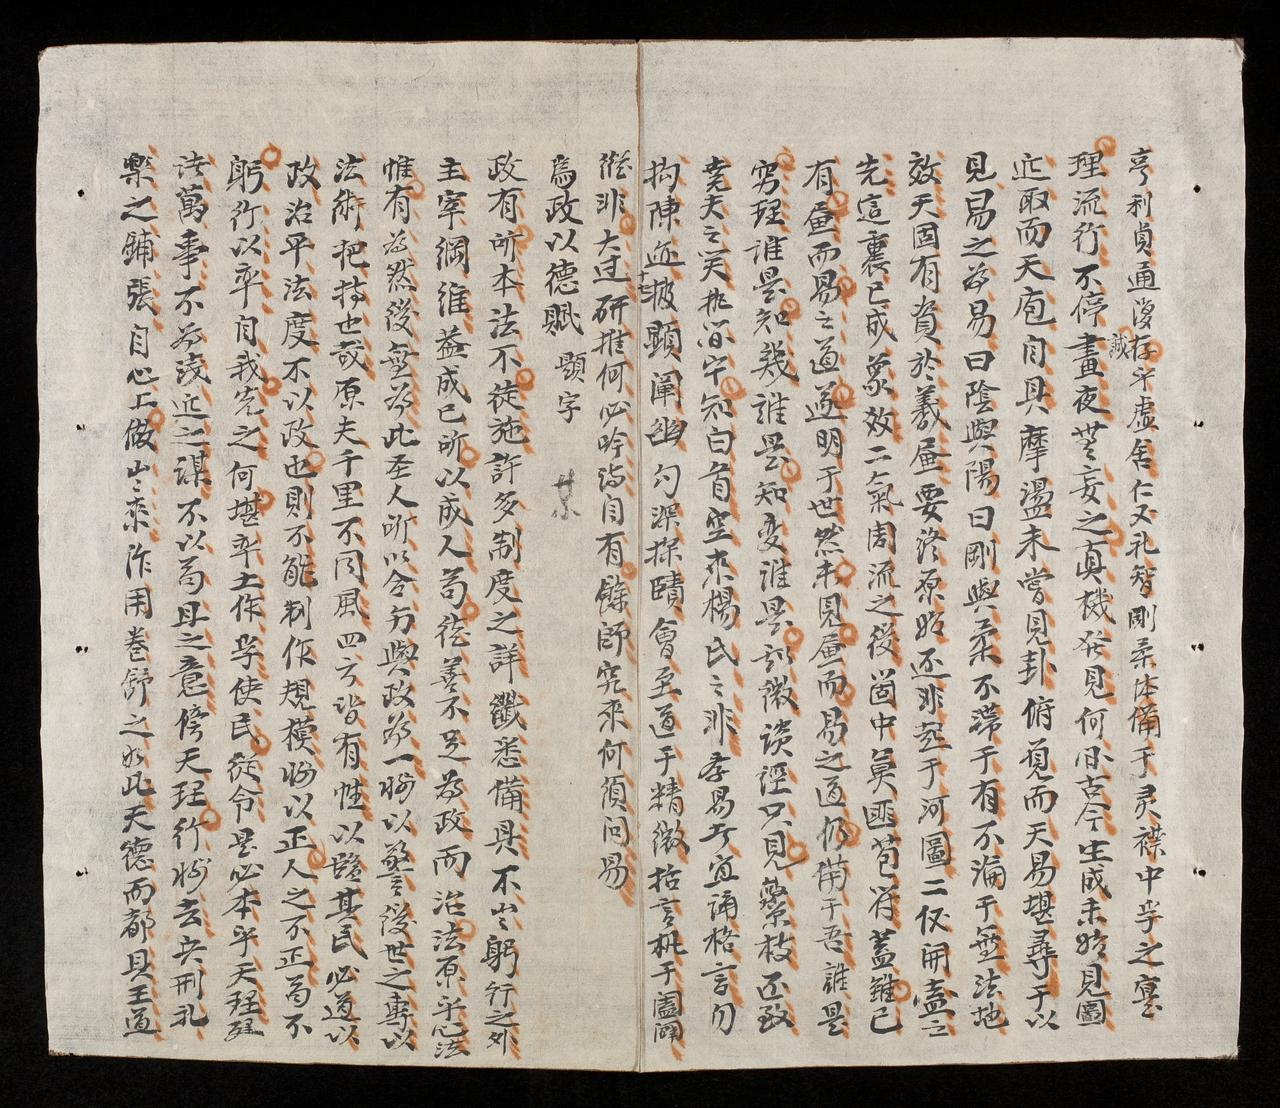 亨利貞通復存乎虛舍仁义礼智剛柔体備于灵襟中孚之寔
誠
理流行不停晝夜無妄之真機發見何殊古今生成未始見圖
近取而天庖自具摩盪未嘗見卦俯覓而天易堪尋于以
見易之為易曰陰與陽曰剛與柔不滯于有不淪于無法地
效天固有資於羲画要終原始还非在于河圖二仪開盍之
先這裏已成象效二氣周流之後箇中莫匪苞符蓋雖已
有画而易之道遂明于世然未見画而易之道仍備于吾誰是
窮理誰是知幾誰是知变誰是訓微談經只見藜枝还致
堯夫之笑挑窗字知白首空來楊氏之非孝易者宜誦格言勿
拘陳迹披顯闡幽勾深探賾會至道于精微括玄机于闔闢
縱非大过研推何必吟詩自有餘師究來何須問易
為政以德賦 題字
某
政有所本法不徒施許多制度之詳纖悉備具不出躬行之外
主宰綱維盖成己所以成人苟徒善不足為政而治法原乎心法
惟有為然後無為此圣人所以合方與政為一將以警後世之專以
法術把持也哉原夫千里不同風四方皆有性以臨其民必道以
政治平法度不以政也則不能制作規模將以正人之不正苟不
躬行以率自我先之何堪率土作孚使民從令是必本乎天理经
法萬事不為淺近之謀不以苟且之意傍天理行將去兵刑礼
樂之鋪張自心上做出來作用卷舒之如此天德而都具王道